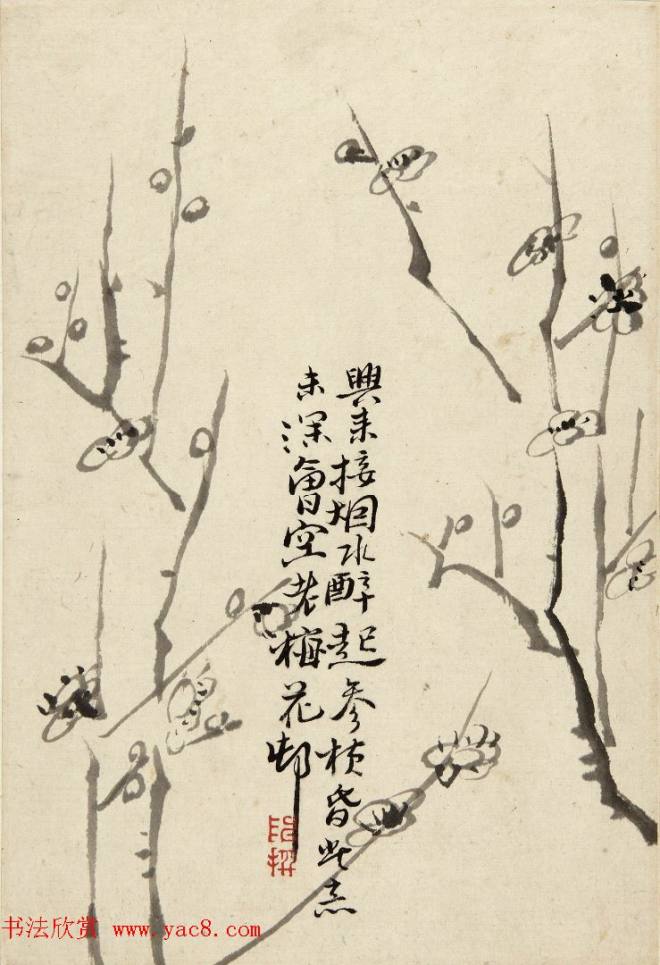 興来接烟水醉起参横昏此意
未深會空老梅花邨
书法欣赏 www.yac8.com